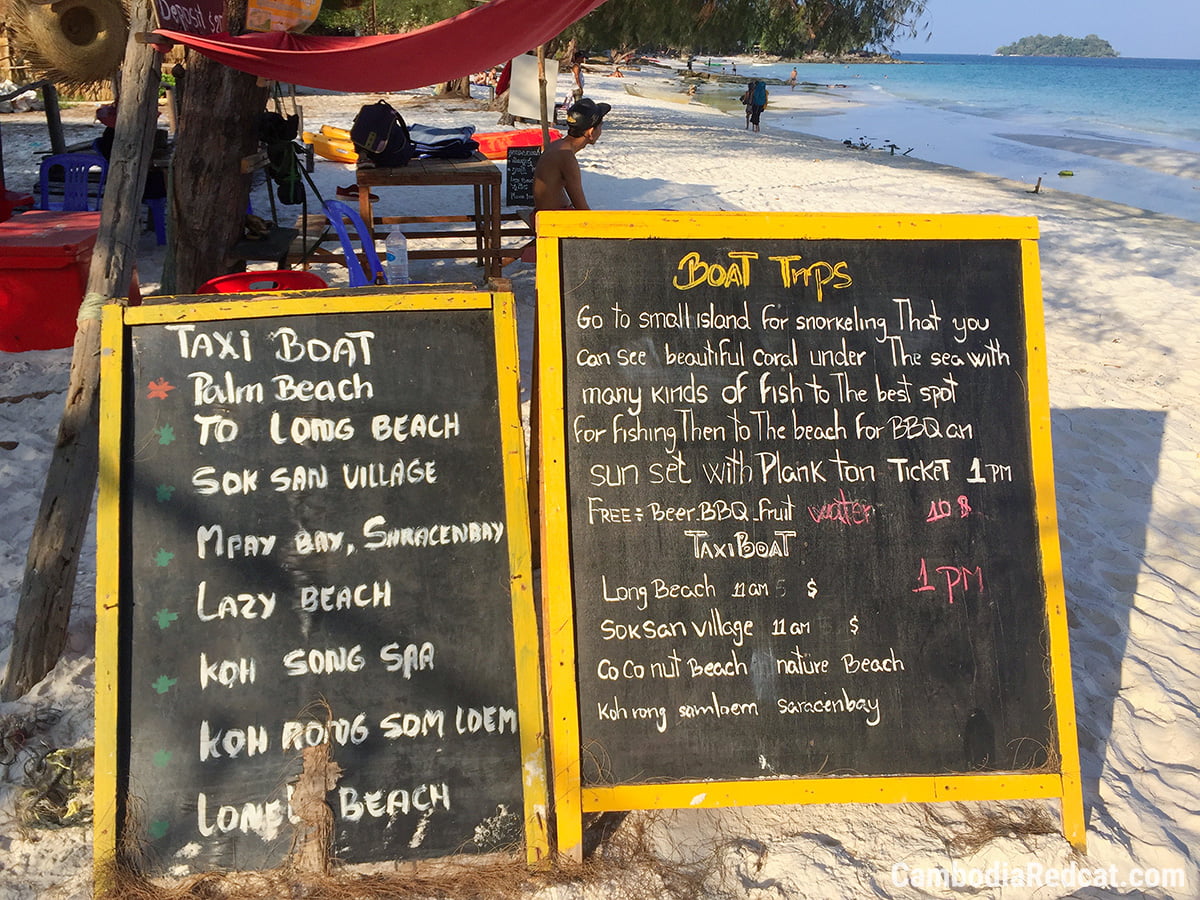 Deposit $2
TAXI BOAT
Palm Beach
TO LONG BEACH
SOK SAN VILLAGE
MPAY BAY, SHRACENBAY
LAZY BEACH
KOH SONG SAA
KOH RONG SOM LOEM
BEACH
BOAT Trips
Go to small island for snorkeling That you
can see beautiful coral under The sea with
many kinds of fish to The best spot
for fishing Then to The beach for BBQ an
sun set with Plank ton TICKET 1 PM
FREE: Beer.BBQ_fruit water 10 $
TAXI BOAT
1 PM
Long Beach 11 am $
Soksan village 11 am $
CoCo nut Beach nature Beach
koh rong samloem saracenbay
CambodiaRedcat.com